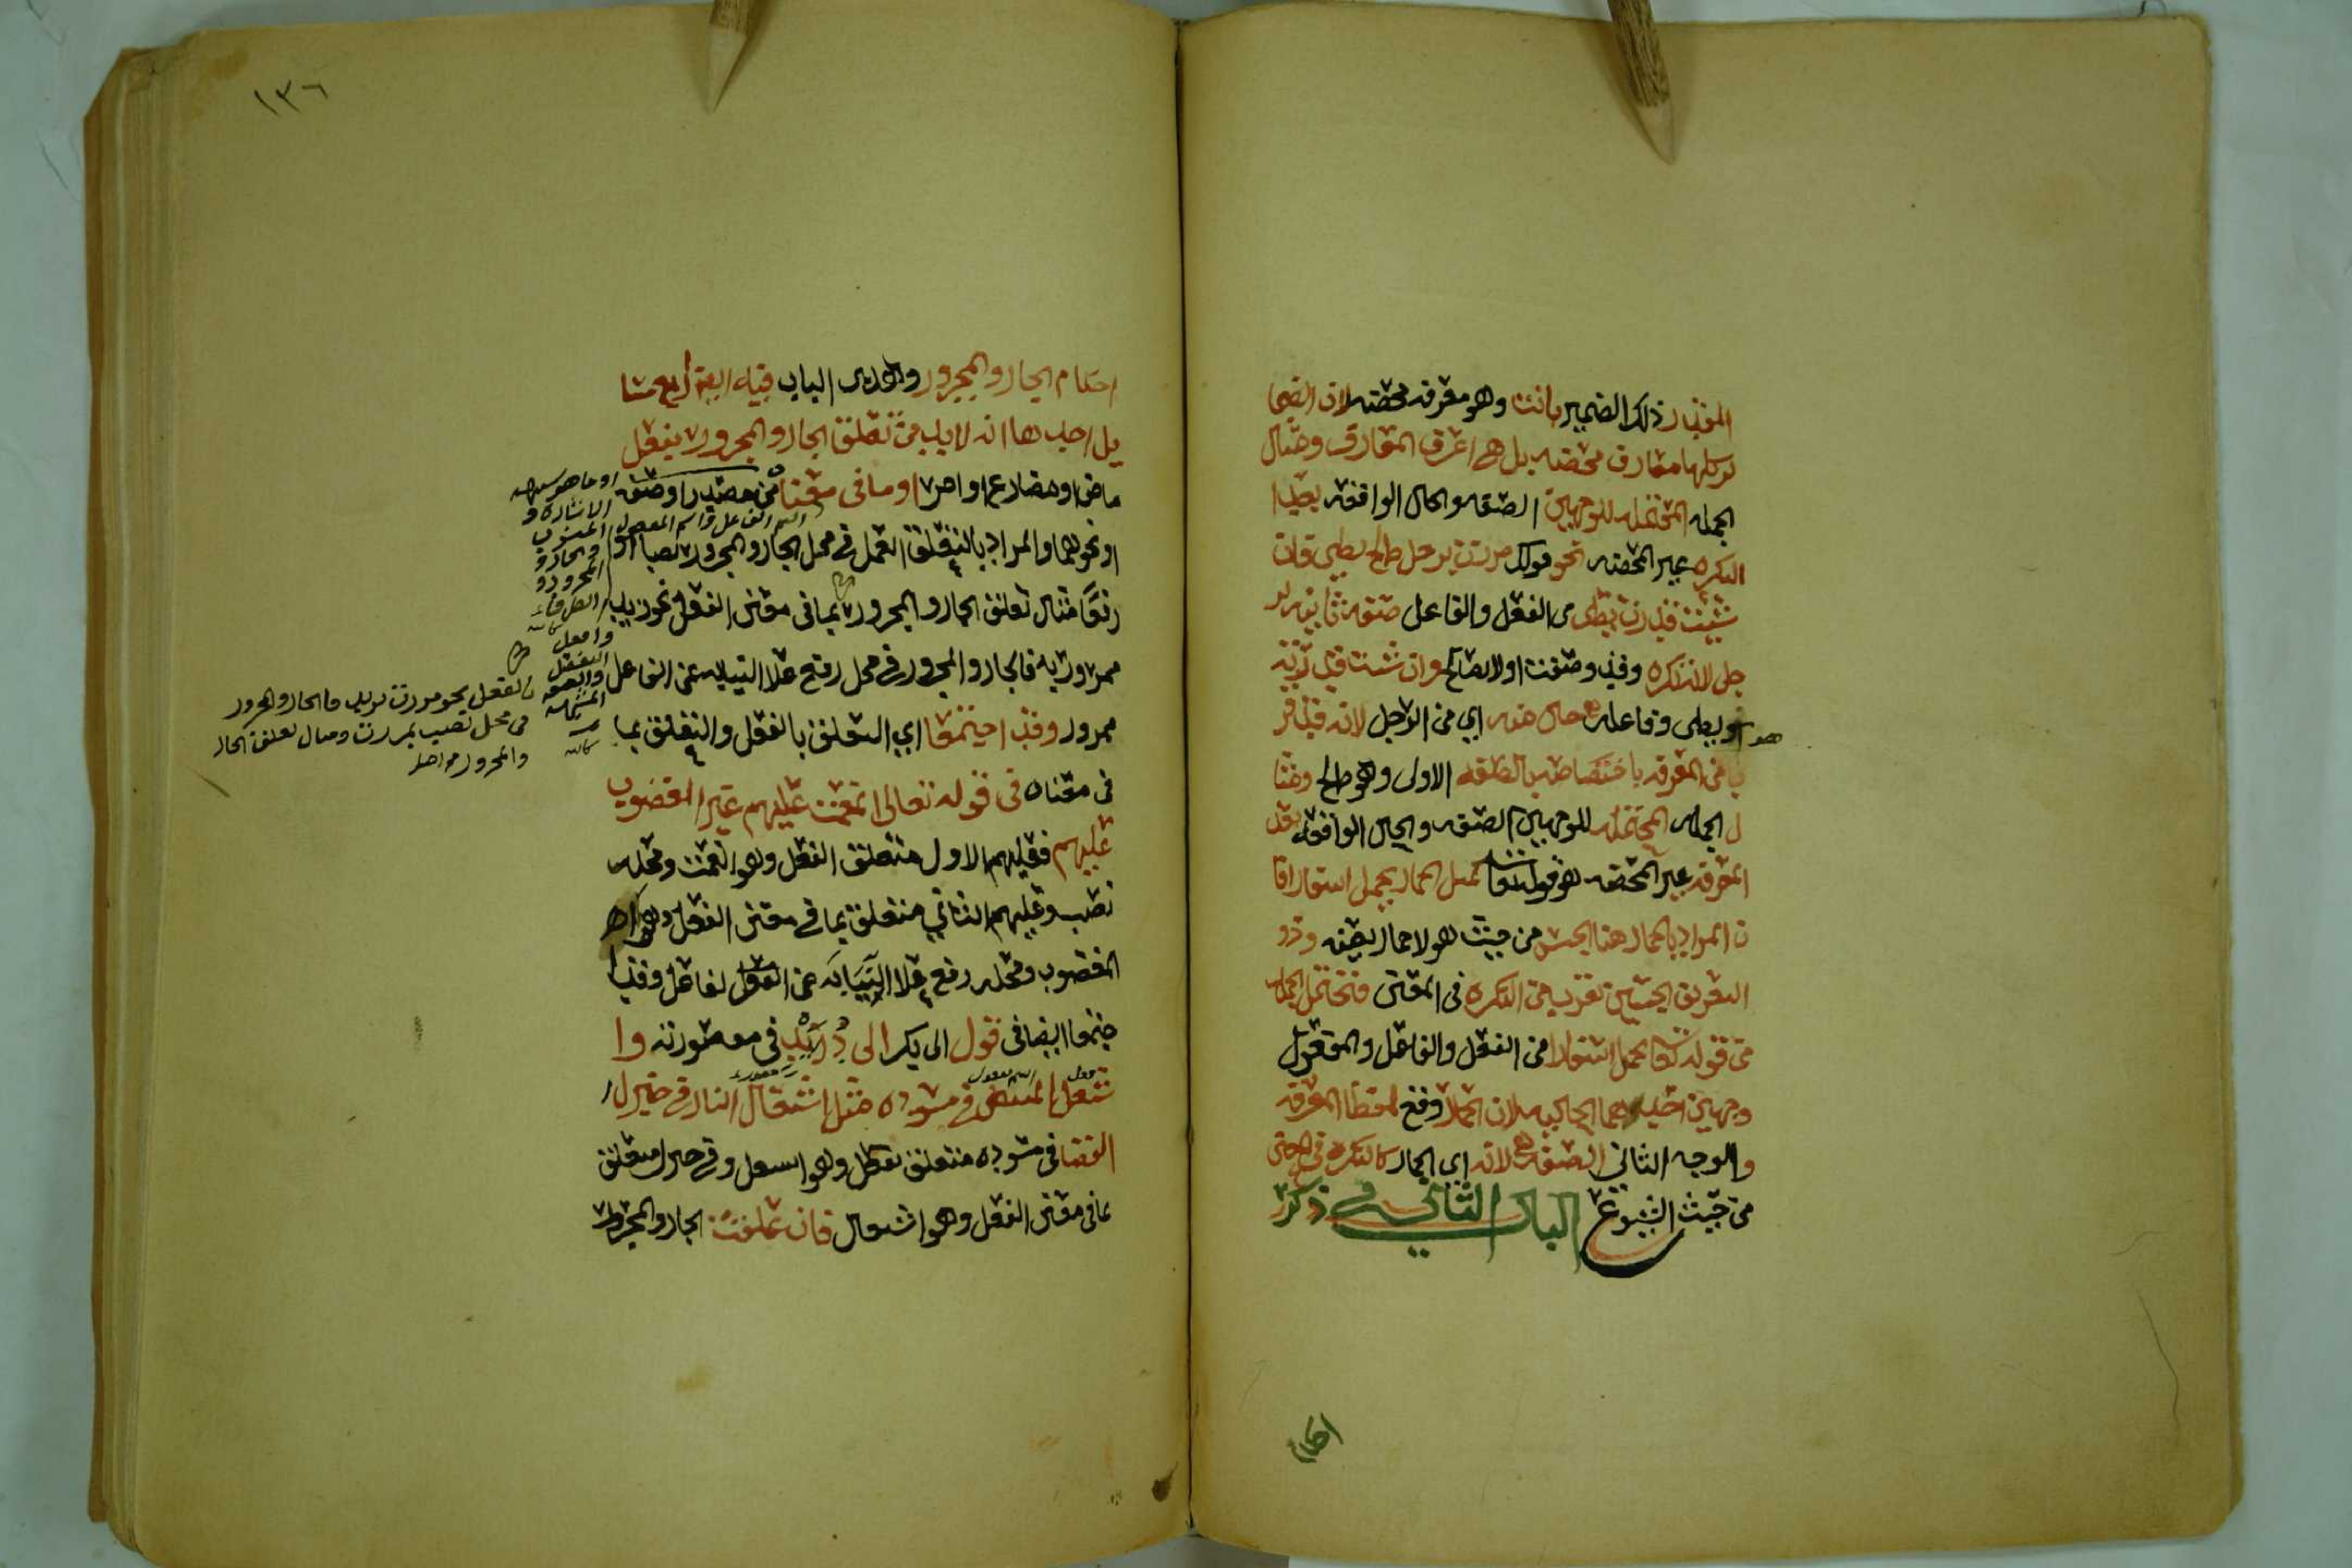 المقدر ذلك الضمير بانت وهو معرفه محضه لان الضما
ير كلها معارف محضه بل هي اعرف المعارف ومثال
الجمله المحتمله للوجهين الصفه والحال الواقعه بعد ا
النكره غير المحضه نحو قولك مررت برجل صالح يصلي فان
شيت قدرت يصلي من الفعل والفاعل صفه ثانيه لر
جل لانه نكره وقد وصفت اولا بصالح وان شيت قدرته
هو يصلي وفاعله حال منه اي من الرجل لانه قد قر
ب من المعرفه باختصاصه بالصفه الاولى وهو صالح ومثا
ل الجمله المحتمله للوجهين الصفه والحال الواقعه بعد
المعرفه غير المحضه هو قوله تعالى كمثل الحمار يحمل اسفارا فا
ن المراد بالحمار هنا الجنس من حيث هو لا حمار بعينه وذو
التعريف الجنسي تقرب من النكره في المعنى فتحتمل الجمله
من قوله تعالى يحمل اسفارا من الفعل والفاعل والمفعول
وجهين احدهما الحاليه لان الحمار وقع بلفظ المعرفه
والوجه الثاني الصفه لانه اي الحمار كالنكره في المعنى
من حيث الشيوع الباب الثاني في ذكر
احكا
١٣٦
احكام الجار والمجرور وفي هذا الباب فيه ايضا اربع مسا
يل احدها انه لا بد من تعلق الجار والمجرور بفعل
ماض او مضارع او امر او ما في معناه من مصدر او صفه
او نحوهما والمراد بالتعلق العمل في محل الجار والمجرور نصبا او
رفعا مثال تعلق الجار والمجرور بما في معنى الفعل نحو زيد
ممرور به فالجار والمجرور في محل رفع على النيابه عن الفاعل
ممرور وقد اجتمعا اي التعلق بالفعل والتعلق بما
في معناه في قوله تعالى انعمت عليهم غير المغضوب
عليهم فعليهم الاول متعلق الفعل وهو انعمت ومحله
نصب وعليهم الثاني متعلق بما في معنى الفعل وهو
المغضوب ومحله رفع على النيابه عن الفاعل وقد ا
جتمعا ايضا في قول ابي بكر ابن دريد في مقصورته وا
شتعل المبيض في مسوده مثل اشتعال النار في جزل ا
الغضا في مسوده متعلق بفعل وهو اشتعل وفي جزل متعلق
بما في معنى الفعل وهو اشتعال فان علقت الجار والمجرور
او ما هو
الاشاره و
المنسوب
والجار و
المجرور و
اسم الفاعل واسم المفعول
بالفعل نحو مررت بزيد فالجار والمجرور
في محل نصب بمررت ومثال تعلق الجار
والمجرور